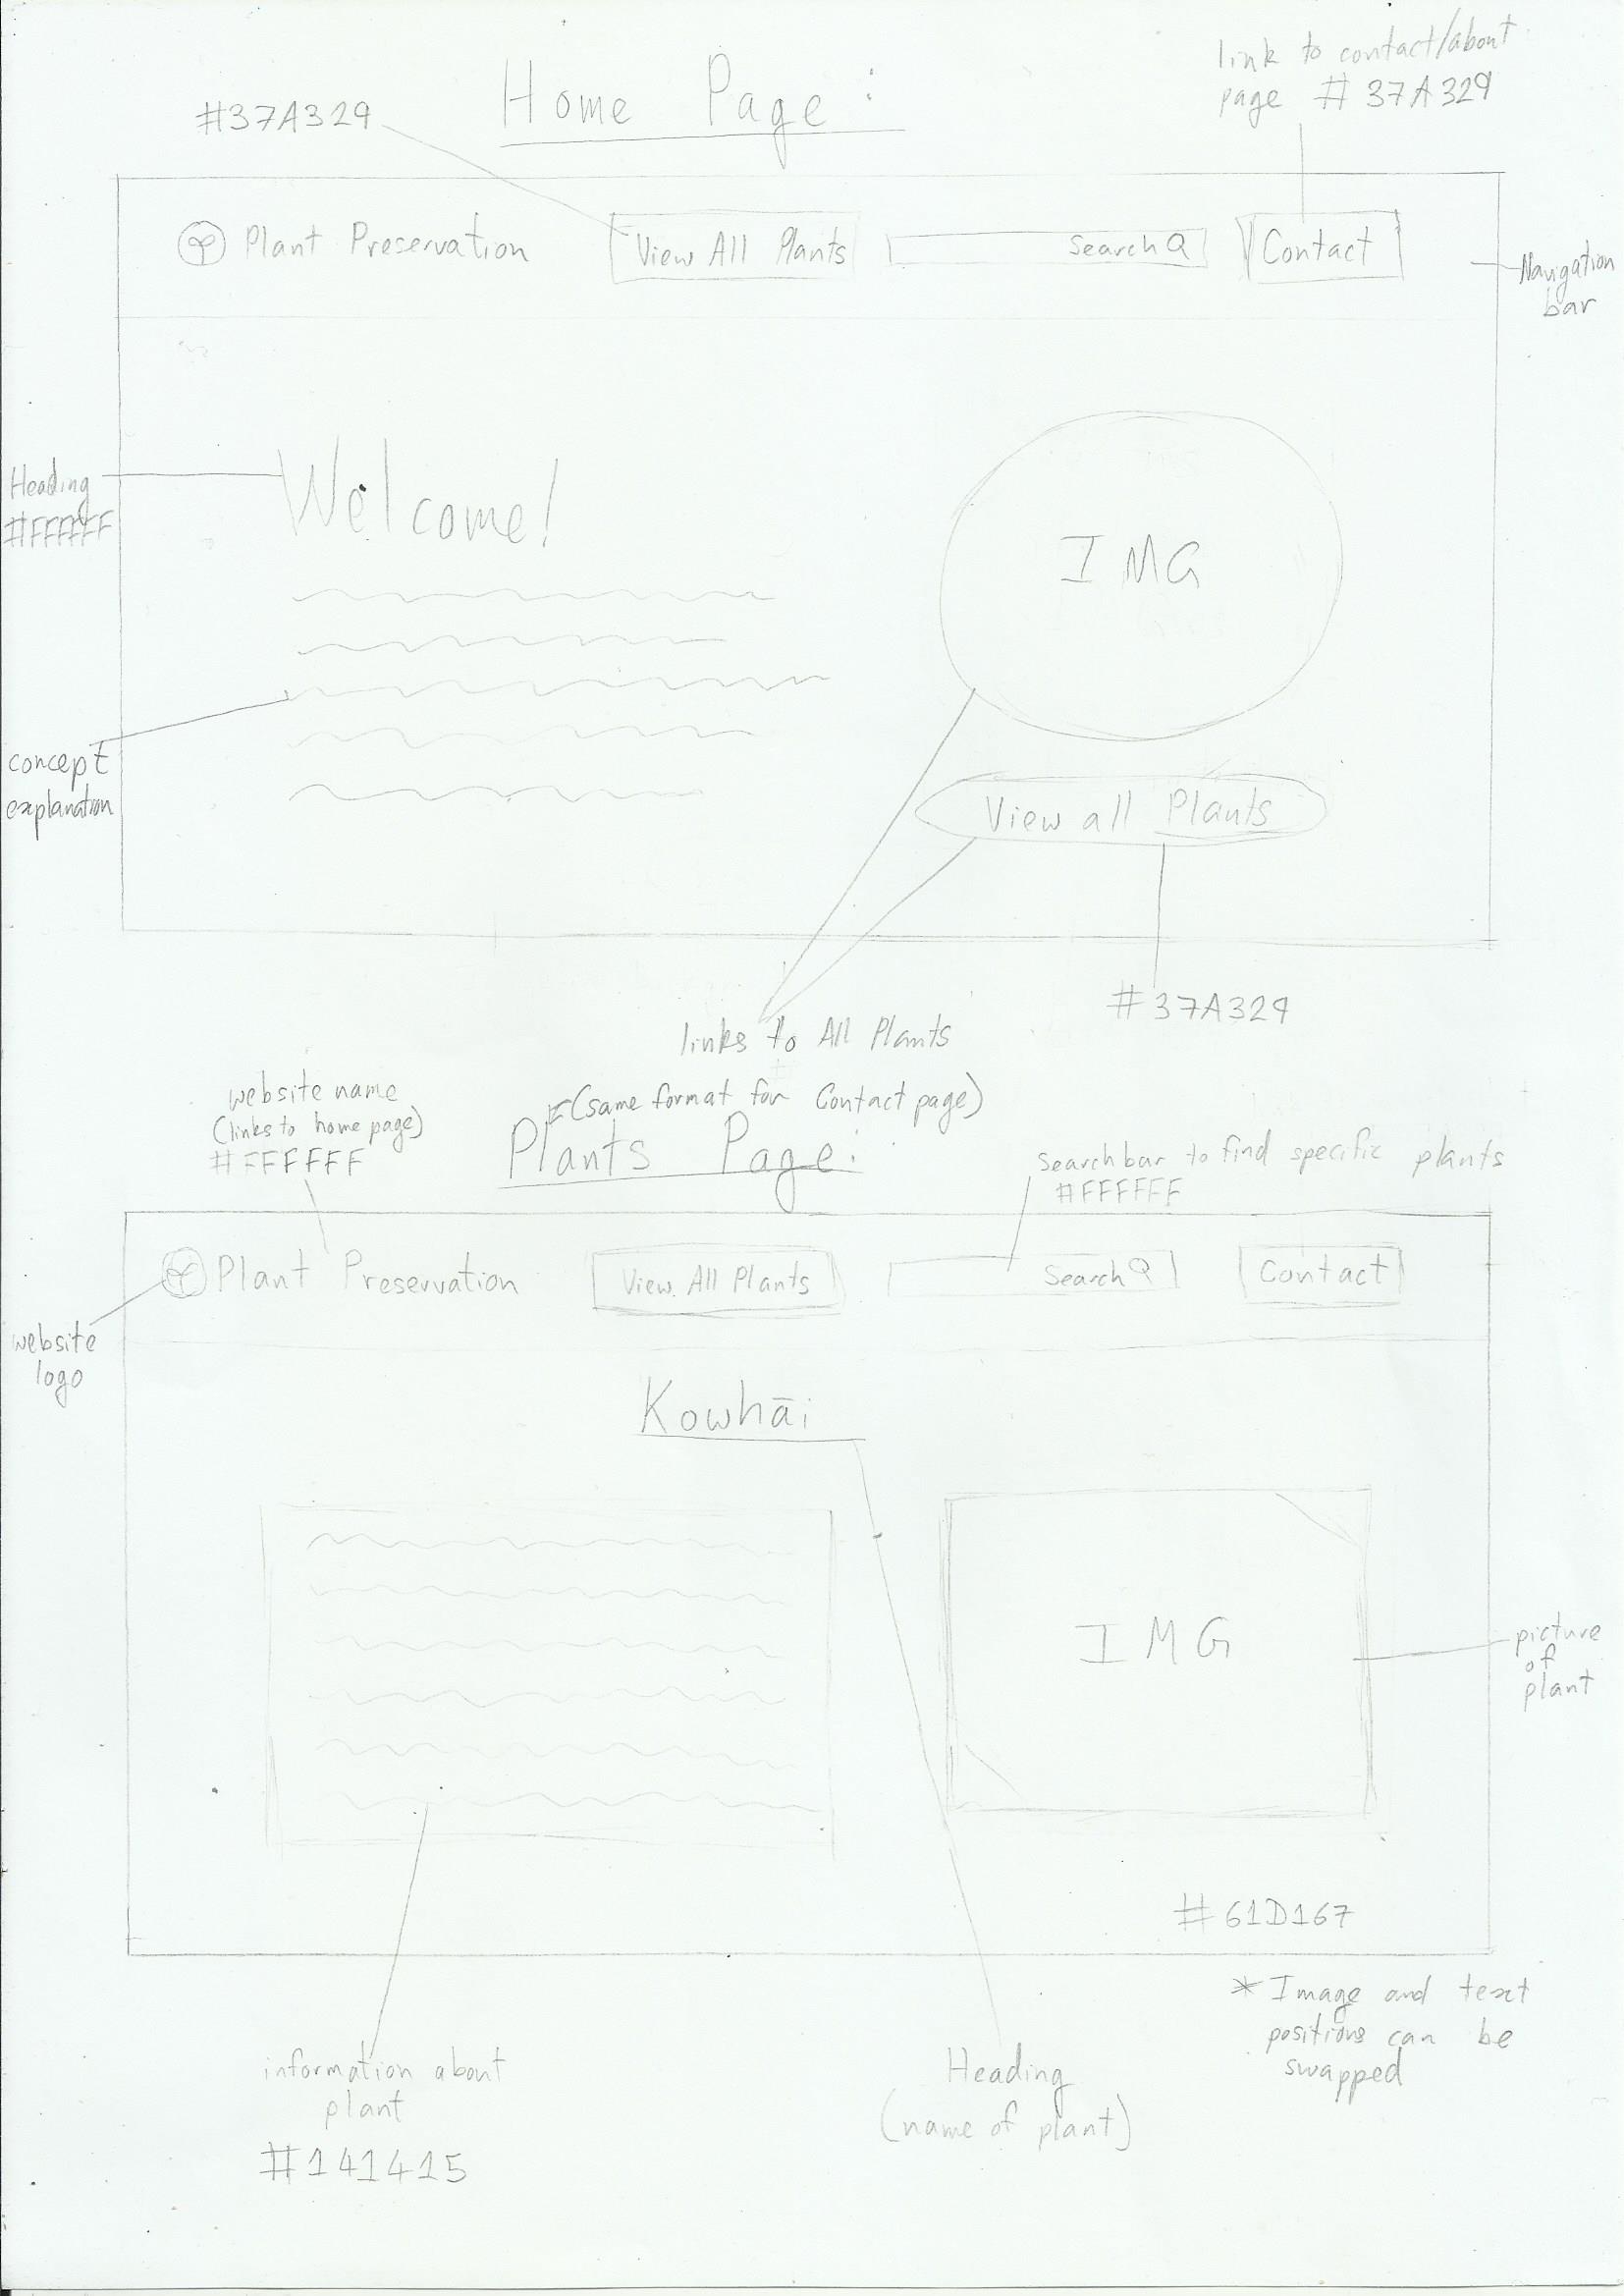 link to contact/about
page #37A329
Home Page:
#37A329
Plant Preservation
View All Plants
Search
Contact
Navigation
bar
Heading
#FFFFFF
Welcome!
IMG
concept
explanation
View all Plants
#37A329
links to All Plants
website name
(links to home page)
#FFFFFF
(same format for Contact page)
Plants Page:
Searchbar to find specific plants
#FFFFFF
Plant Preservation
View All Plants
Search
Contact
website
logo
Kowhāi
IMG
picture
of
plant
#61D167
* Image and text
positions can be
swapped
information about
plant
#141415
Heading
(name of plant)